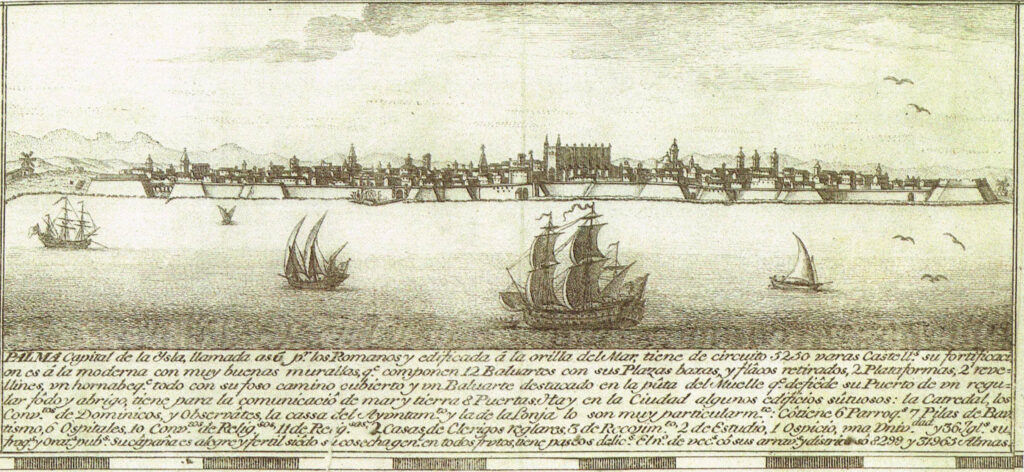 PALMA Capital de la Ysla, llamada así pr. los Romanos y edificada á la orilla del Mar, tiene de circuito 5250 varas Castells. su fortificaci
on es á la moderna con muy buenas murallas, qe. componen 12 Baluartes con sus Plazas baxas, y flãcos retirados, 2 Plataformas, 2 reve-
llines, vn hornabeqe. todo con su foso camino cubierto y vn Baluarte destacado en la pũta del Muelle qe. defiẽde su Puerto de vn regu-
lar fõdo y abrigo, tiene para la comunicacio de mar y tierra 8 Puertas. Hay en la Ciudad algunos edificios sũtuosos: la Catredal, los
Convtos. de Dominicos, y Observãtes, la cassa del Ayuntamto. y la de la Lonja, lo son muy particularmte. Cõtiene 6 Parroqs. 7 Pilas de Bau-
tismo, 6 Ospitales, 10 Convtos. de Religsos. 11 de Religsas. 2 Casas de Clerigos reglares, 3 de Recojimto. 2 de Estudio, 1 Ospicio, vna Vnivdad. y 36 Iglas. su
es alegre y fertil cosecha gen. en todos frutos, tiene paseos delics. El no. de vecs. cõ sus y só 8299 y 31965 Almas.